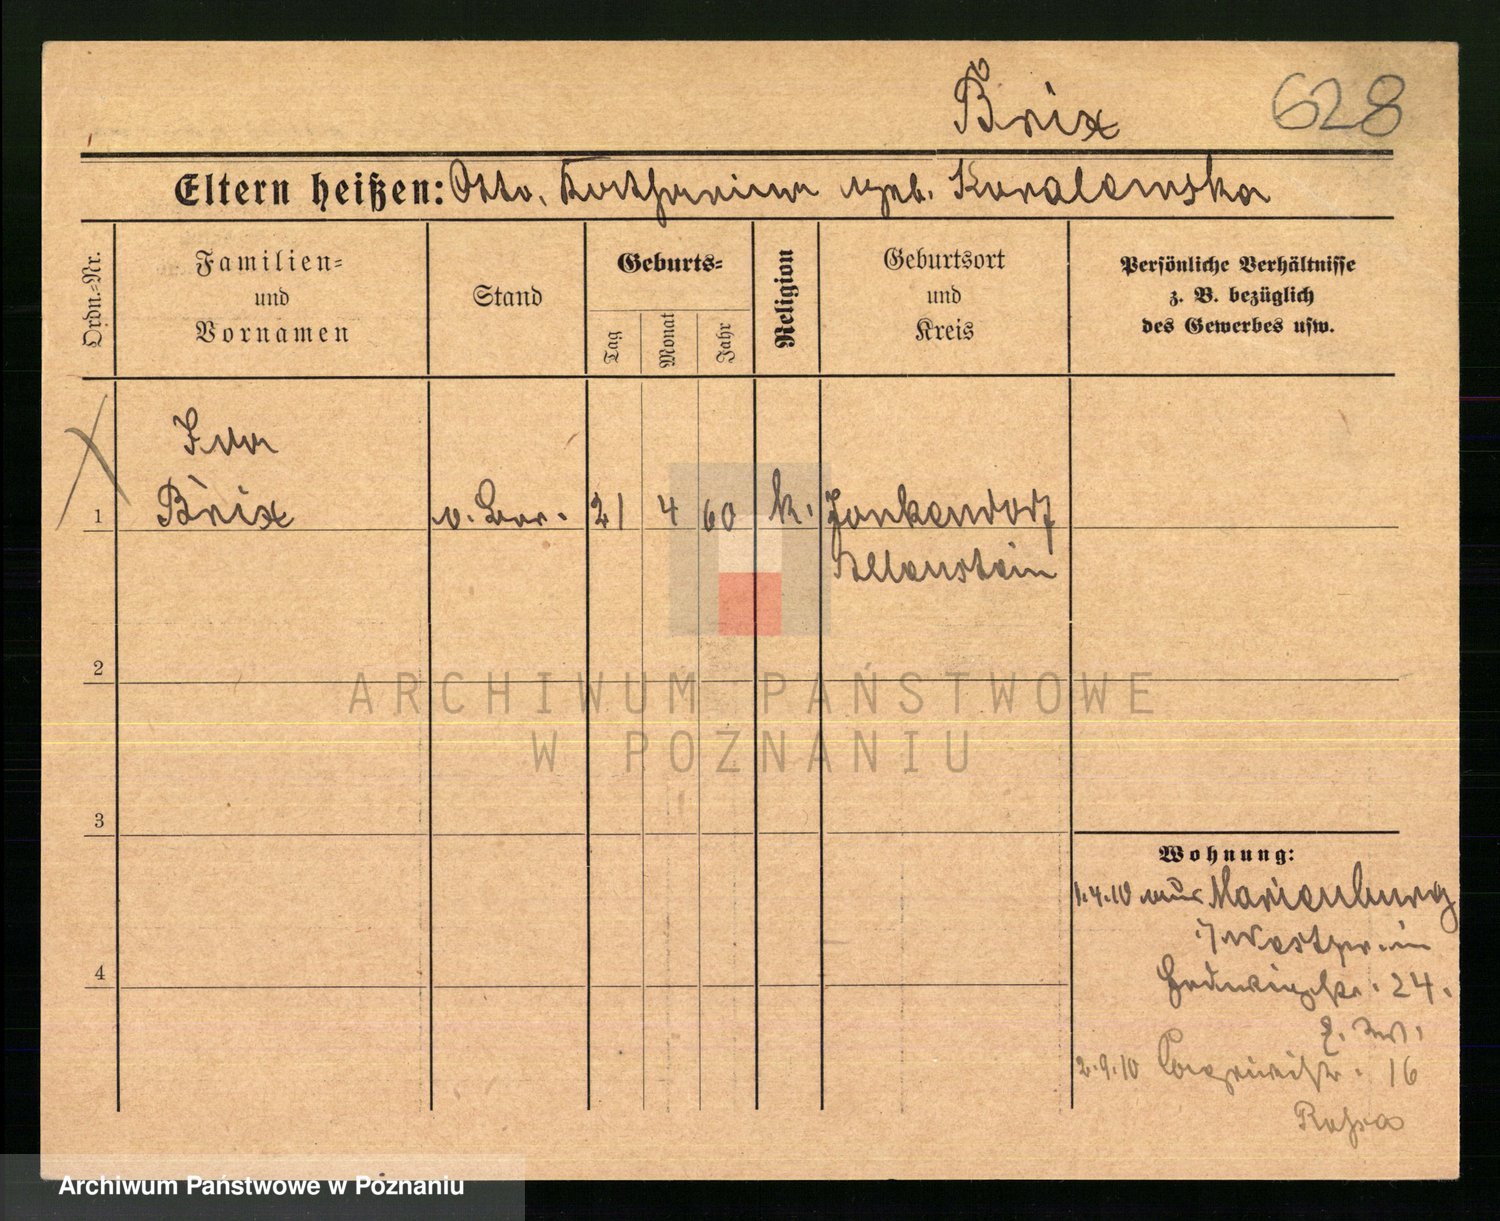 Brix 628
Eltern heißen: Otto, Katharina geb. Kovalewska
Ordn.-Nr.
Familien-
und
Vornamen
Stand
Geburts-
Tag
Monat
Jahr
Religion
Geburtsort
und
Kreis
Persönliche Verhältnisse
z. B. bezüglich
des Gewerbes usw.
Iva
1 Brix 21 4 60 k. Jonkendorf
Allenstein
2
ARCHIWUM PAŃSTWOWE
W POZNANIU
3
4
Wohnung:
1.4.10 aus Marienburg
24.
2.9.10 16
Archiwum Państwowe w Poznaniu